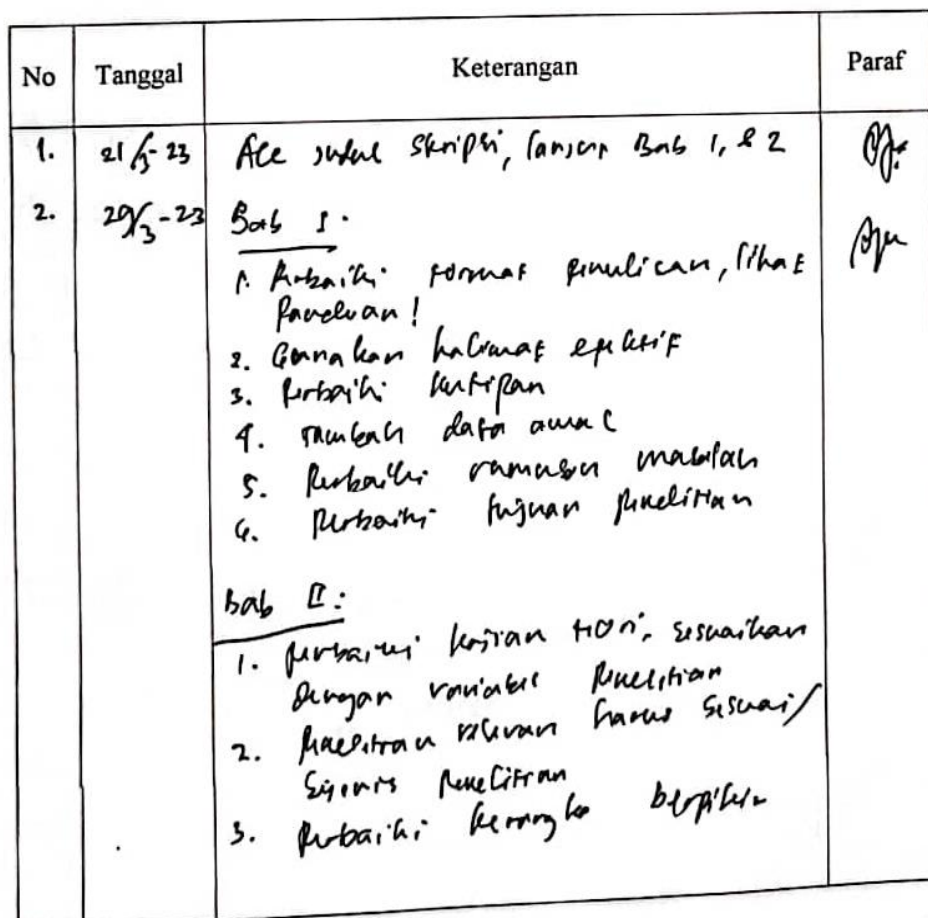 No Tanggal Keterangan Paraf
1. 21/3-23 Acc judul Skripsi, lanjut Bab 1, & 2
2. 29/3-23 Bab I.
1. Perbaiki format penulisan, lihat
Panduan!
2. Gunakan kalimat efektif
3. Perbaiki kutipan
4. Tambah data awal
5. Perbaiki rumusan masalah
6. Perbaiki tujuan penelitian
Bab II:
1. Perbaiki kajian teori, sesuaikan
dengan variabel penelitian
2. Penelitian relevan harus sesuai/
sejenis penelitian
3. Perbaiki kerangka berpikir